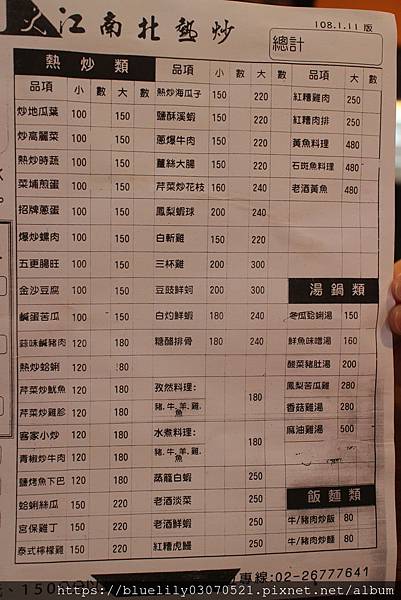 大江南北熱炒
108.1.11 版
總計
熱炒類
品項 小 數 大 數
炒地瓜葉 100 150
炒高麗菜 100 150
熱炒時蔬 100 150
菜埔煎蛋 100 150
招牌蔥蛋 100 150
爆炒螺肉 100 150
五更腸旺 100 150
金沙豆腐 100 150
鹹蛋苦瓜 100 150
蒜味鹹豬肉 120 180
熱炒蛤蜊 120 180
芹菜炒魷魚 120 180
芹菜炒雞胗 120 180
客家小炒 120 180
青椒炒牛肉 120 180
鹽烤魚下巴 120 180
蛤蜊絲瓜 150 220
宮保雞丁 150 220
泰式檸檬雞 150 220
品項 小 數 大 數
熱炒海瓜子 150 220
鹽酥溪蝦 150 220
蔥爆牛肉 150 220
薑絲大腸 150 220
芹菜炒花枝 160 240
鳳梨蝦球 200 240
白斬雞 150 220
三杯雞 200 300
豆豉鮮蚵 200 300
白灼鮮蝦 180 240
糖醋排骨 180 240
孜然料理:
豬.牛.羊.雞.魚
180
水煮料理:
豬.牛.羊.雞.魚
180
蒸籠白蝦 250
老酒淡菜 250
老酒鮮蝦 250
紅糟虎鰻 250
品項 大 數
紅糟雞肉 250
紅糟肉排 250
黃魚料理 480
石斑魚料理 480
老酒黃魚 480
湯鍋類
冬瓜蛤蜊湯 150
鮮魚味噌湯 160
酸菜豬肚湯 200
鳳梨苦瓜雞 280
香菇雞湯 280
麻油雞湯 500
飯麵類
牛/豬肉炒飯 80
牛/豬肉炒麵 80
專線:02-26777641
https://bluelily03070521.pixnet.net/album